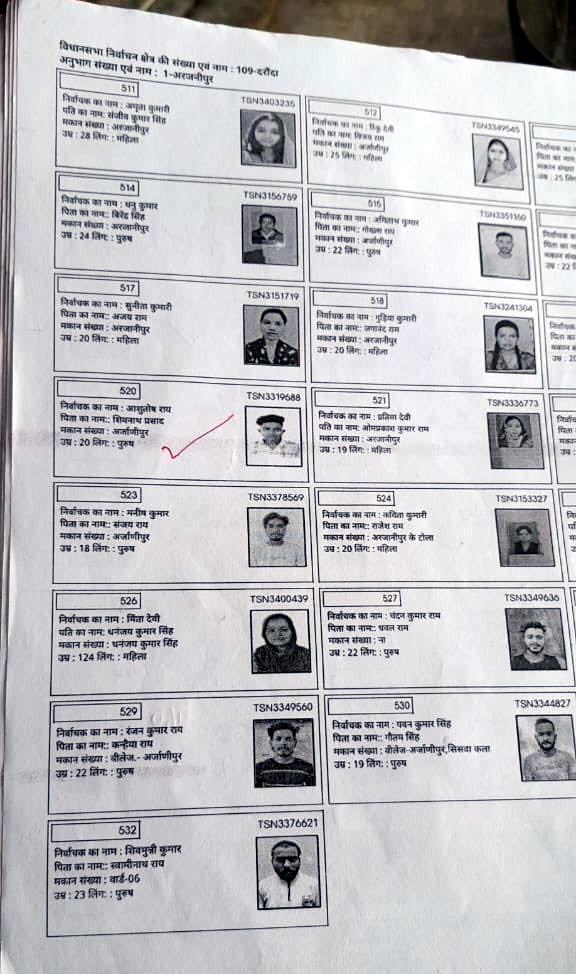 विधानसभा निर्वाचन क्षेत्र की संख्या एवं नाम : 109-दरौंदा
अनुभाग संख्या एवं नाम : 1-अरजनीपुर
511
TSN3403235
निर्वाचक का नाम : अमृता कुमारी
पति का नाम: संजीव कुमार सिंह
मकान संख्या : अरजानीपुर
उम्र : 28 लिंग: : महिला
512
TSN3349545
निर्वाचक का नाम : रिंकू देवी
पति का नाम: विजय राम
मकान संख्या : अर्जाणीपुर
उम्र : 25 लिंग: : महिला
514
TSN3156759
निर्वाचक का नाम : धनु कुमार
पिता का नाम:: बिरेंद्र सिंह
मकान संख्या : अरजानीपुर
उम्र : 24 लिंग: : पुरुष
515
TSN3351160
निर्वाचक का नाम : अमिताभ कुमार
पिता का नाम:: गोखला राय
मकान संख्या : अर्जाणीपुर
उम्र : 22 लिंग: : पुरुष
517
TSN3151719
निर्वाचक का नाम : सुनीता कुमारी
पिता का नाम:: अजय राम
मकान संख्या : अरजानीपुर
उम्र : 20 लिंग: : महिला
518
TSN3241304
निर्वाचक का नाम : गुड़िया कुमारी
पिता का नाम:: जगानंद राम
मकान संख्या : अरजानीपुर
उम्र : 20 लिंग: : महिला
520
TSN3319688
निर्वाचक का नाम : आशुतोष राय
पिता का नाम:: शिवनाथ प्रसाद
मकान संख्या : अर्जाणीपुर
उम्र : 20 लिंग: : पुरुष
521
TSN3336773
निर्वाचक का नाम : प्रतिमा देवी
पति का नाम: ओमप्रकाश कुमार राम
मकान संख्या : अरजानीपुर
उम्र : 19 लिंग: : महिला
523
TSN3378569
निर्वाचक का नाम : मनीष कुमार
पिता का नाम:: संजय राय
मकान संख्या : अर्जाणीपुर
उम्र : 18 लिंग: : पुरुष
524
TSN3153327
निर्वाचक का नाम : कविता कुमारी
पिता का नाम:: राजेश राम
मकान संख्या : अरजानीपुर के टोला
उम्र : 20 लिंग: : महिला
526
TSN3400439
निर्वाचक का नाम : मिंता देवी
पति का नाम: धनंजय कुमार सिंह
मकान संख्या : धनंजय कुमार सिंह
उम्र : 124 लिंग: : महिला
527
TSN3349636
निर्वाचक का नाम : चंदन कुमार राम
पिता का नाम:: धवल राम
मकान संख्या : ना
उम्र : 22 लिंग: : पुरुष
529
TSN3349560
निर्वाचक का नाम : रंजन कुमार राय
पिता का नाम:: कन्हैया राय
मकान संख्या : वीलेज.- अर्जाणीपुर
उम्र : 22 लिंग: : पुरुष
530
TSN3344827
निर्वाचक का नाम : पवन कुमार सिंह
पिता का नाम:: गौतम सिंह
मकान संख्या : वीलेज-अर्जाणीपुर,सिसवा कला
उम्र : 19 लिंग: : पुरुष
532
TSN3376621
निर्वाचक का नाम : शिवमुन्नी कुमार
पिता का नाम:: स्वामीनाथ राय
मकान संख्या : वार्ड-06
उम्र : 23 लिंग: : पुरुष